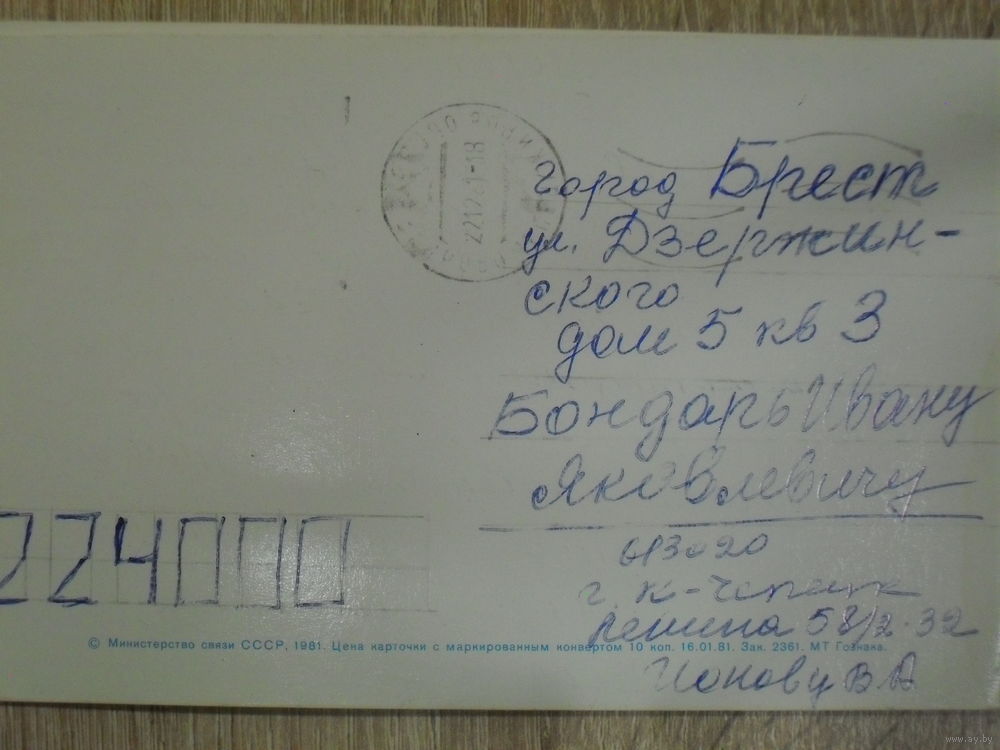 город Брест
ул. Дзержин-
ского
дом 5 кв 3
Бондарь Ивану
Яковлевичу
224000
613020
г. К-Чепецк
Ленина 58/2-32
Попову В А
© Министерство связи СССР, 1981. Цена карточки с маркированным конвертом 10 коп. 16.01.81. Зак. 2361. МТ Гознака.
www.ay.by